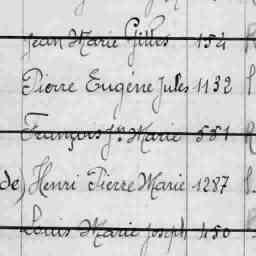 Jean Marie Gilles 154 R
Pierre Eugène Jules 1132
François Jh Marie 551 R
de) Henri Pierre Marie 1287
Louis Marie Joseph 450